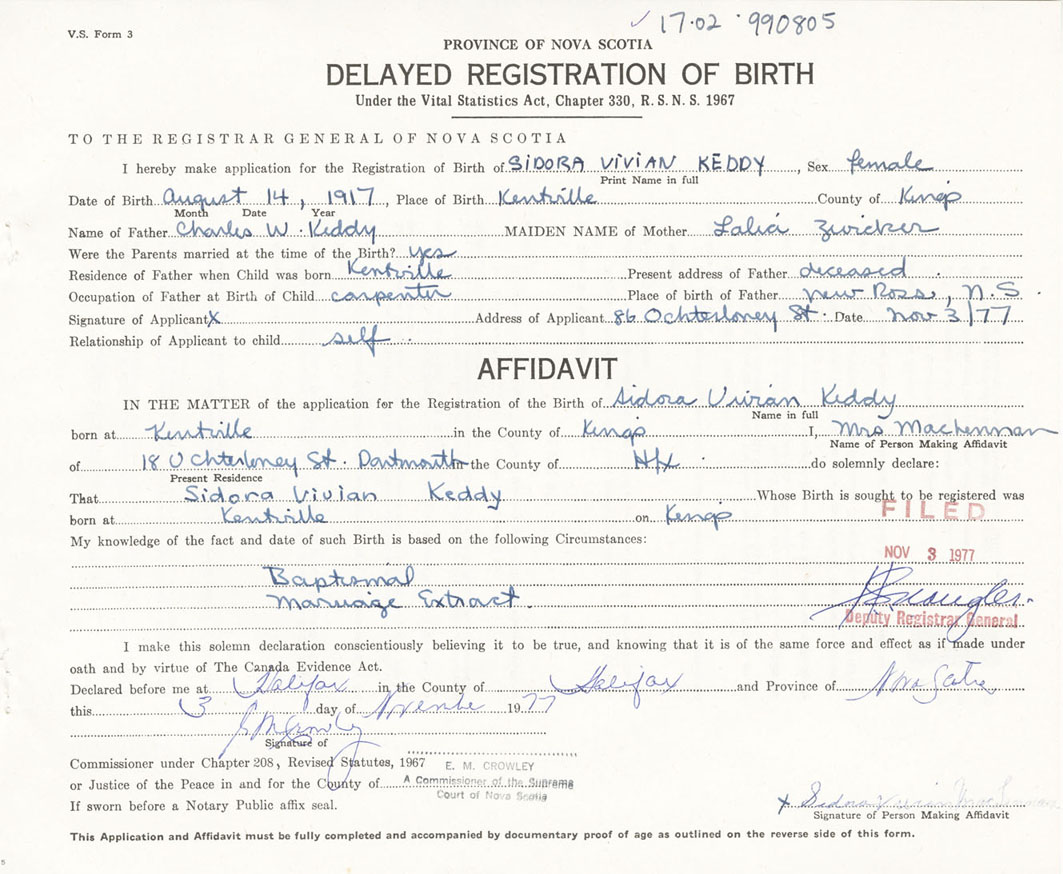 V.S. Form 3
✓ 17·02 · 990805
PROVINCE OF NOVA SCOTIA
DELAYED REGISTRATION OF BIRTH
Under the Vital Statistics Act, Chapter 330, R.S.N.S. 1967
TO THE REGISTRAR GENERAL OF NOVA SCOTIA
I hereby make application for the Registration of Birth of SIDORA VIVIAN KEDDY, Sex female
Print Name in full
Date of Birth August 14, 1917, Place of Birth Kentville County of Kings
Month Date Year
Name of Father Charles W. Keddy MAIDEN NAME of Mother Lalia Zwicker
Were the Parents married at the time of the Birth? yes
Residence of Father when Child was born Kentville Present address of Father deceased
Occupation of Father at Birth of Child carpenter Place of birth of Father New Ross, N.S.
Signature of Applicant X Address of Applicant 86 Ochterloney St. Date Nov 3/77
Relationship of Applicant to child self
AFFIDAVIT
IN THE MATTER of the application for the Registration of the Birth of Sidora Vivian Keddy
Name in full
born at Kentville in the County of Kings I, Mrs MacLennan
Name of Person Making Affidavit
of 18 Ochterloney St. Dartmouth in the County of Hfx do solemnly declare:
Present Residence
That Sidora Vivian Keddy Whose Birth is sought to be registered was
born at Kentville on Kings
FILED
My knowledge of the fact and date of such Birth is based on the following Circumstances:
NOV 3 1977
Baptismal
Marriage Extract.
Deputy Registrar General
I make this solemn declaration conscientiously believing it to be true, and knowing that it is of the same force and effect as if made under
oath and by virtue of The Canada Evidence Act.
Declared before me at Halifax in the County of Halifax and Province of Nova Scotia
this 3 day of November 1977
Signature of
Commissioner under Chapter 208, Revised Statutes, 1967
E. M. CROWLEY
or Justice of the Peace in and for the County of
A Commissioner of the Supreme
Court of Nova Scotia
If sworn before a Notary Public affix seal.
x Sidora Vivian MacLennan
Signature of Person Making Affidavit
This Application and Affidavit must be fully completed and accompanied by documentary proof of age as outlined on the reverse side of this form.
5